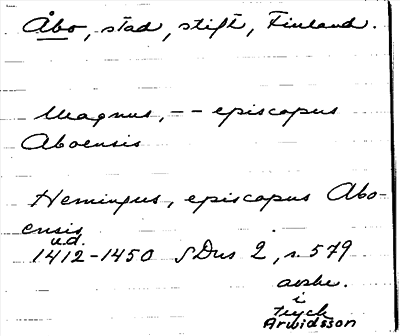 Åbo, stad, stift, Finland.
Magnus, -- episcopus
Aboensis
Hemingus, episcopus Abo-
ensis
u.d.
1412-1450 SDns 2, s. 579
avskr.
i
tryck
Arwidsson